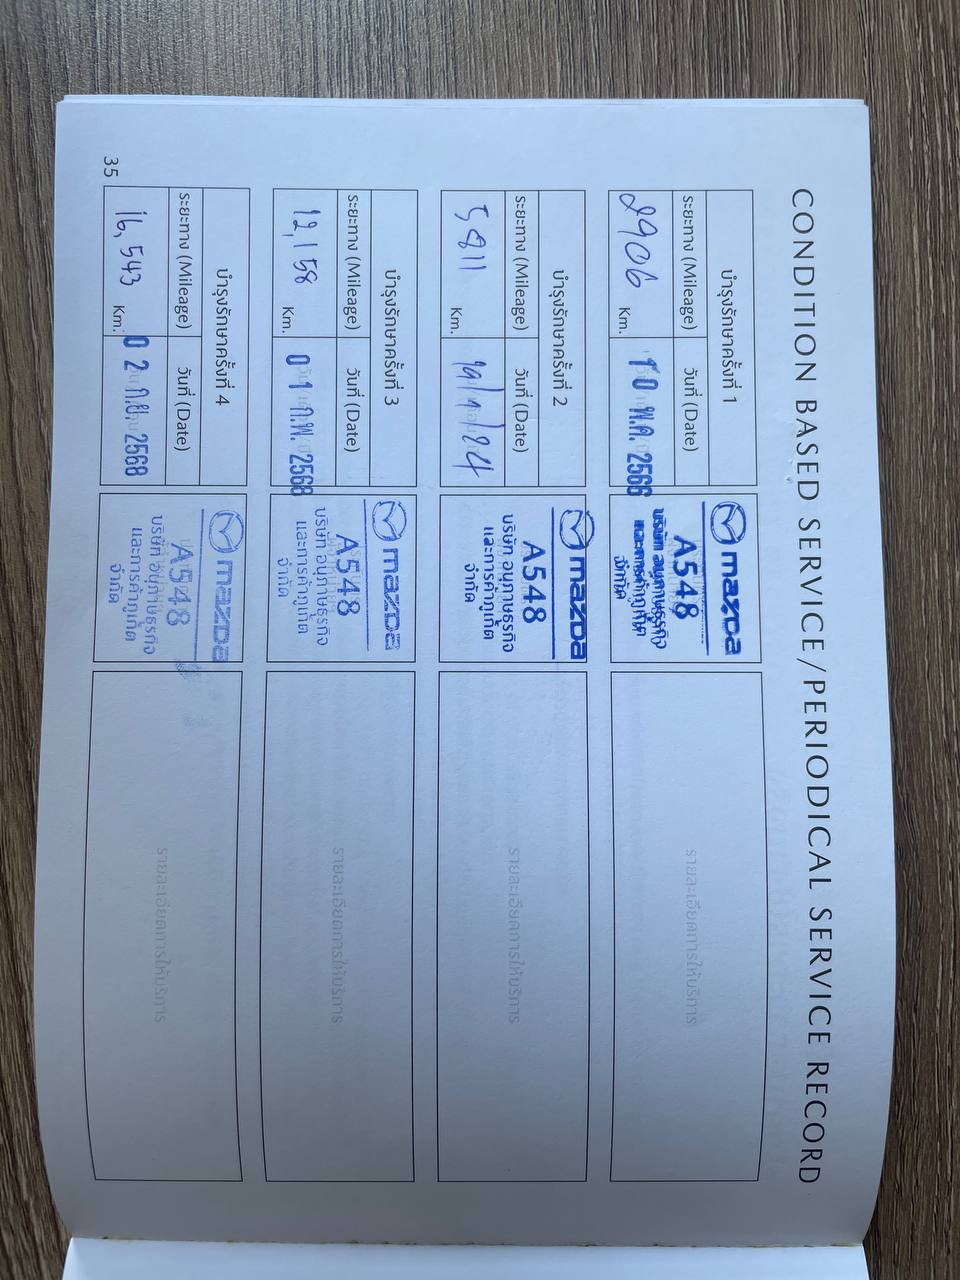 CONDITION BASED SERVICE/PERIODICAL SERVICE RECORD
บำรุงรักษาครั้งที่ 1
ระยะทาง (Mileage) วันที่ (Date)
2906 Km. 10 พ.ค. 2566
mazda
A548
บริษัท อนุภาษธุรกิจ
และการค้าภูเก็ต
จำกัด
รายละเอียดการให้บริการ
บำรุงรักษาครั้งที่ 2
ระยะทาง (Mileage) วันที่ (Date)
5811 Km.
mazda
A548
บริษัท อนุภาษธุรกิจ
และการค้าภูเก็ต
จำกัด
รายละเอียดการให้บริการ
บำรุงรักษาครั้งที่ 3
ระยะทาง (Mileage) วันที่ (Date)
12,158 Km. 01 ก.พ. 2568
mazda
A548
บริษัท อนุภาษธุรกิจ
และการค้าภูเก็ต
จำกัด
รายละเอียดการให้บริการ
บำรุงรักษาครั้งที่ 4
ระยะทาง (Mileage) วันที่ (Date)
16,543 Km. 02 ก.ย. 2568
mazda
A548
บริษัท อนุภาษธุรกิจ
และการค้าภูเก็ต
จำกัด
รายละเอียดการให้บริการ
35